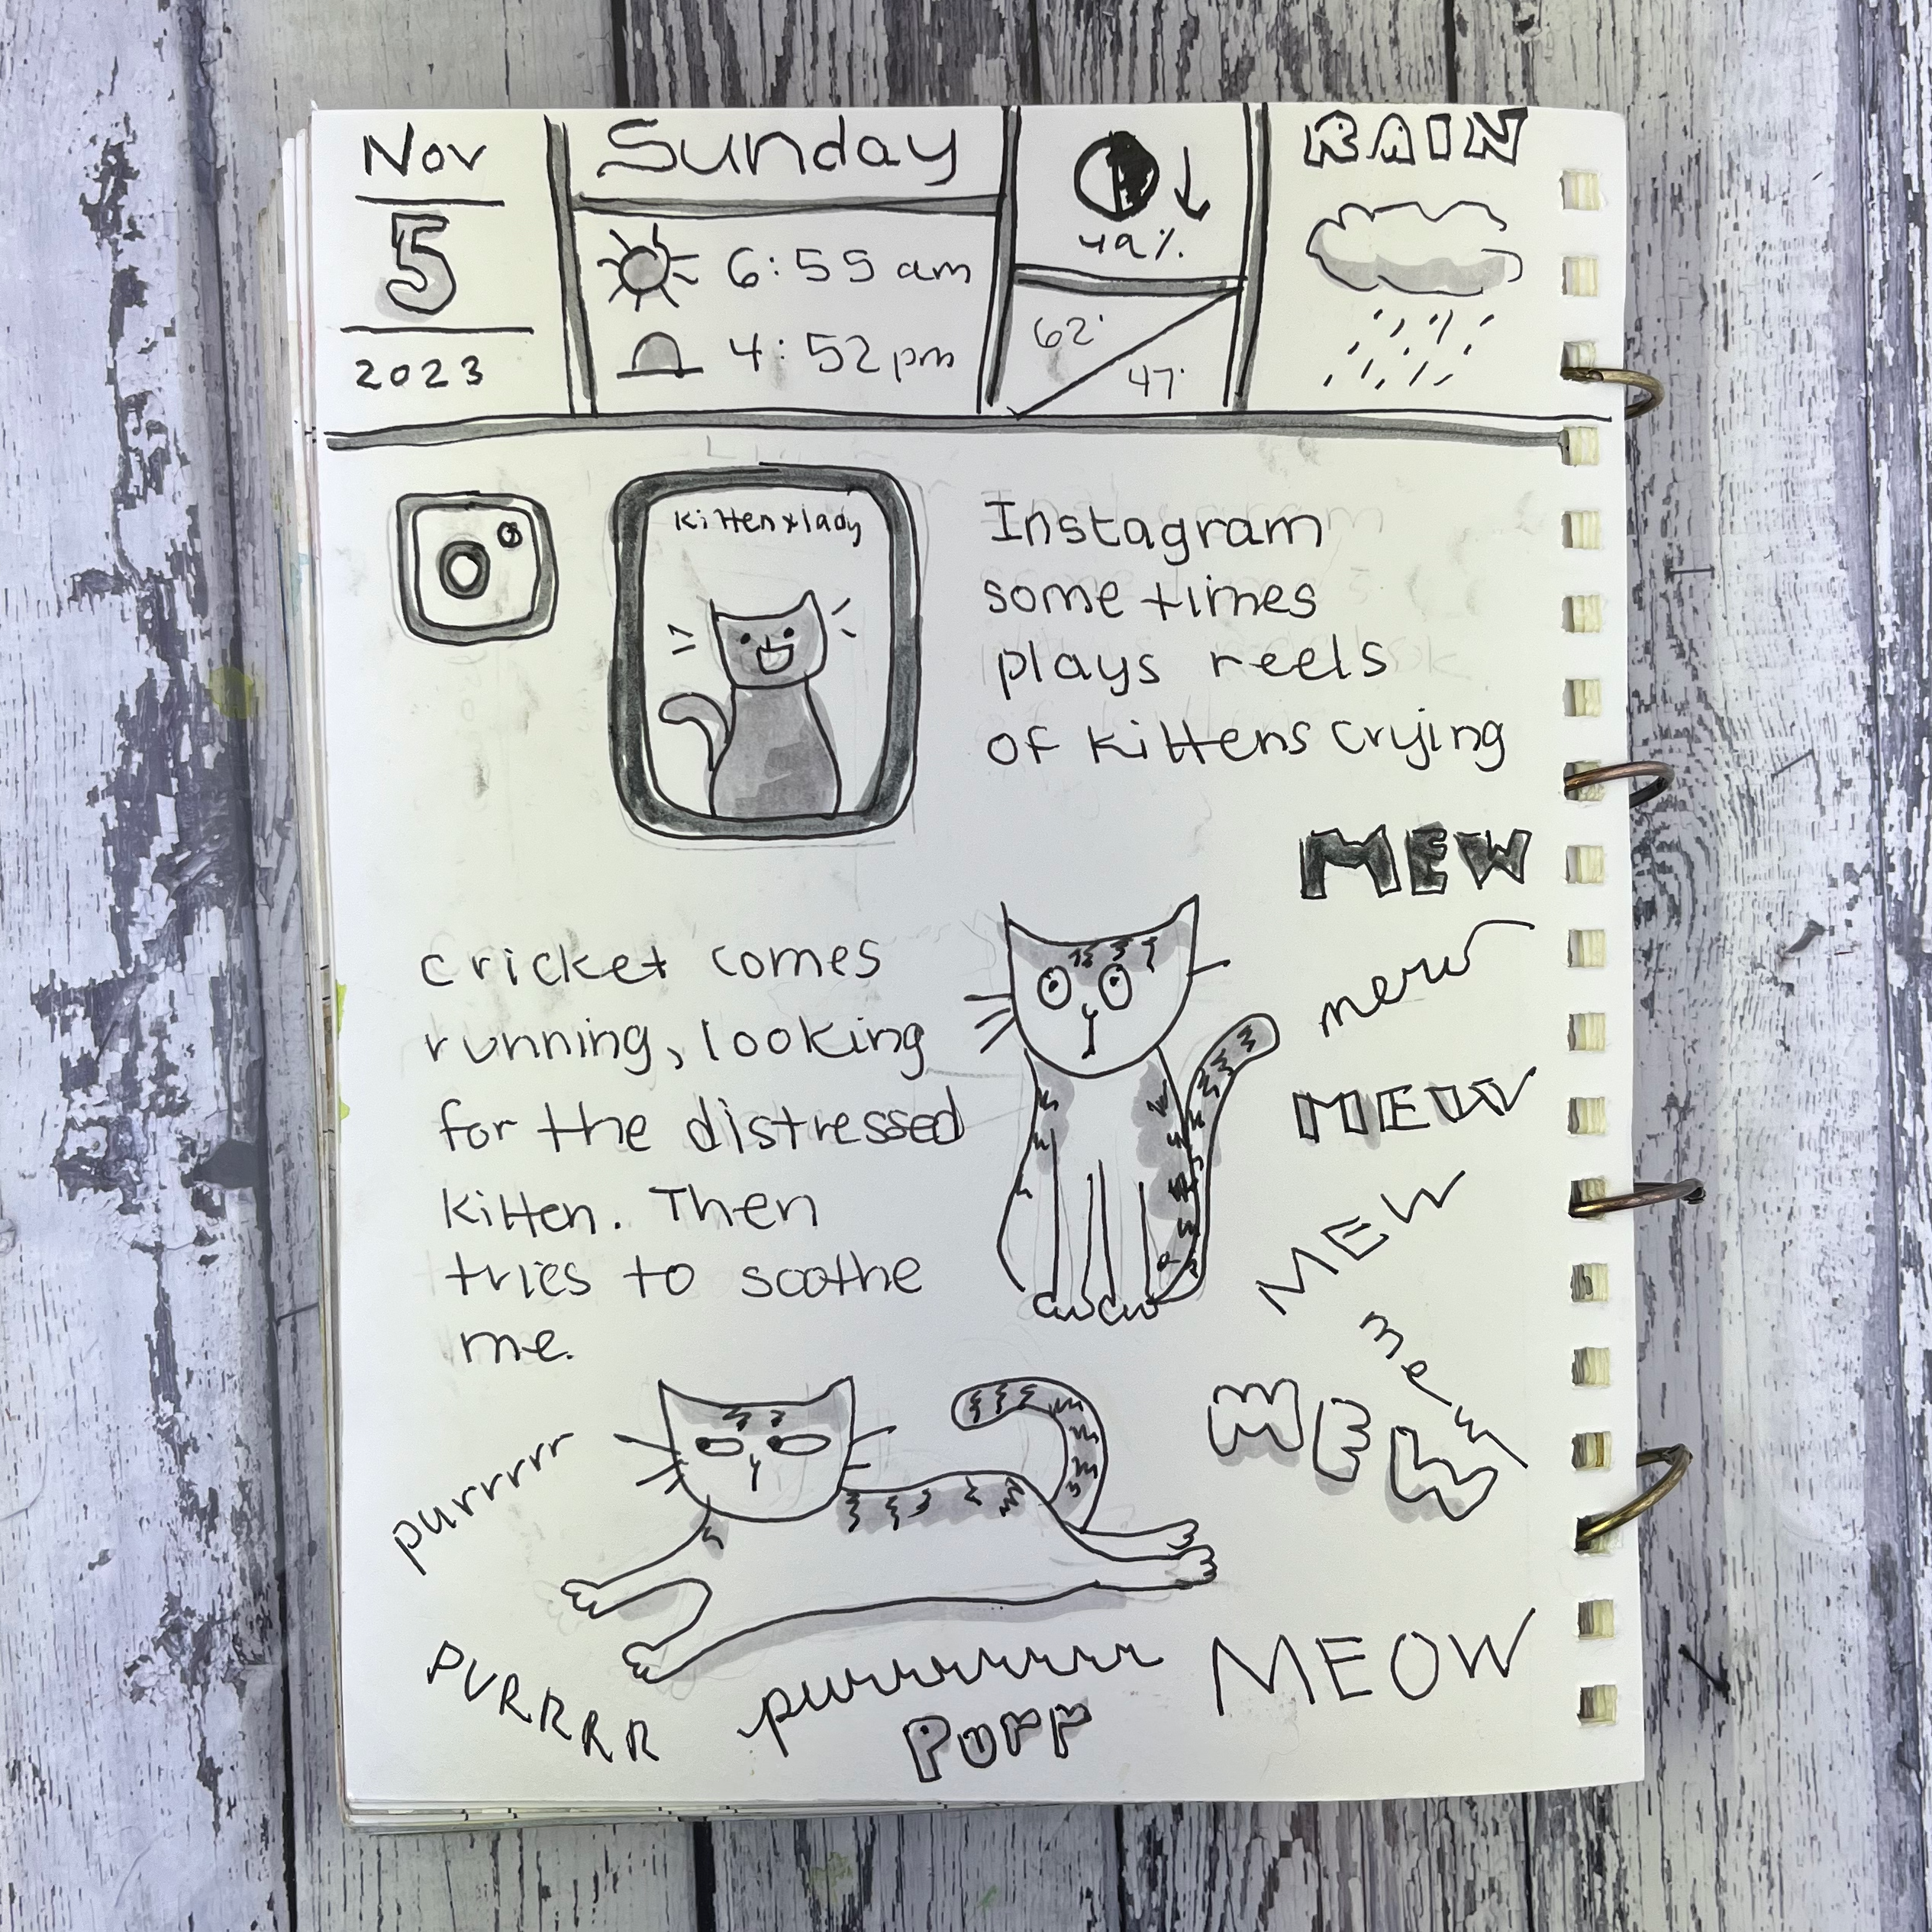 Nov
5
2023
Sunday
6:55 am
4:52 pm
49%
62°
47°
RAIN
Kitten x lady
Instagram
some times
plays reels
of kittens crying
MEW
mew
MEW
MEW
mew
MEW
MEOW
cricket comes
running, looking
for the distressed
kitten. Then
tries to soothe
me.
purrrrr
PURRRR
purrrrrrrr
Purr